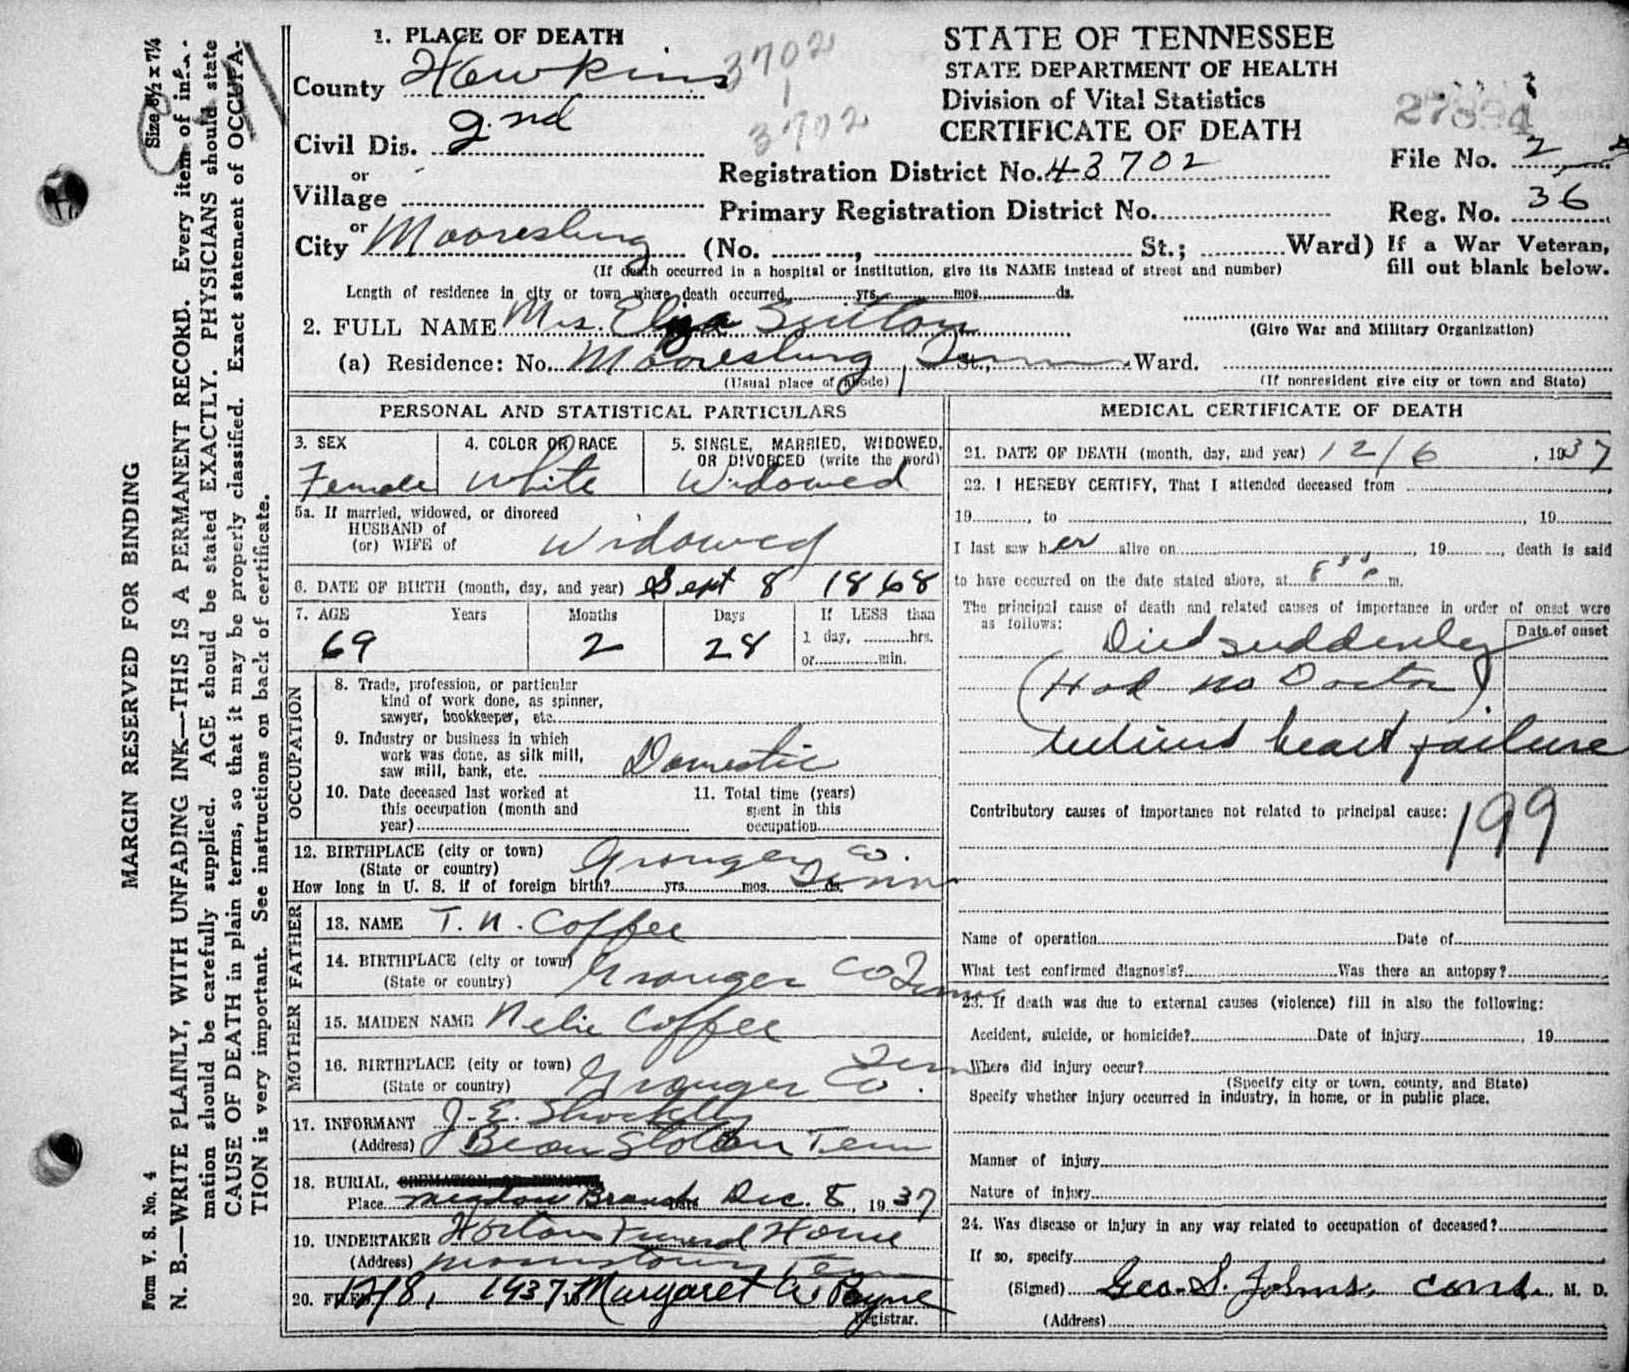 MARGIN RESERVED FOR BINDING
Form V. S. No. 4
Size 8½ x 7¼
N. B.—WRITE PLAINLY, WITH UNFADING INK—THIS IS A PERMANENT RECORD. Every item of infor-
mation should be carefully supplied. AGE should be stated EXACTLY. PHYSICIANS should state
CAUSE OF DEATH in plain terms, so that it may be properly classified. Exact statement of OCCUPA-
TION is very important. See instructions on back of certificate.
1. PLACE OF DEATH
County Hawkins
Civil Dis. 2nd
or
Village
or
City Mooresburg (No. ...., .... St.; .... Ward)
(If death occurred in a hospital or institution, give its NAME instead of street and number)
3702
1
3702
STATE OF TENNESSEE
STATE DEPARTMENT OF HEALTH
Division of Vital Statistics
CERTIFICATE OF DEATH
Registration District No. 43702
Primary Registration District No.
27894
File No. 2
Reg. No. 36
If a War Veteran,
fill out blank below.
Length of residence in city or town where death occurred yrs. mos. ds.
2. FULL NAME Mrs. Eliza Sutton
(Give War and Military Organization)
(a) Residence: No. Mooresburg, Tenn St., Ward.
(Usual place of abode)
(If nonresident give city or town and State)
PERSONAL AND STATISTICAL PARTICULARS
3. SEX
Female
4. COLOR OR RACE
White
5. SINGLE, MARRIED, WIDOWED,
OR DIVORCED (write the word)
Widowed
5a. If married, widowed, or divorced
HUSBAND of
(or) WIFE of
Widowed
6. DATE OF BIRTH (month, day, and year) Sept 8 1868
7. AGE Years Months Days
69 2 28
If LESS than
1 day, ....hrs.
or....min.
OCCUPATION
8. Trade, profession, or particular
kind of work done, as spinner,
sawyer, bookkeeper, etc.
9. Industry or business in which
work was done, as silk mill,
saw mill, bank, etc. Domestic
10. Date deceased last worked at
this occupation (month and
year)
11. Total time (years)
spent in this
occupation
12. BIRTHPLACE (city or town) Granger Co.
(State or country) Tenn
How long in U. S. if of foreign birth? yrs. mos. ds.
FATHER
13. NAME T. N. Coffee
14. BIRTHPLACE (city or town) Granger Co Tenn
(State or country)
MOTHER
15. MAIDEN NAME Nelie Coffee
16. BIRTHPLACE (city or town) Granger Co. Tenn
(State or country)
17. INFORMANT J. E. Shockley
(Address) Bean Station Tenn
18. BURIAL, CREMATION, OR REMOVAL
Place Branch Date Dec. 8, 1937
19. UNDERTAKER Hortons Funeral Home
(Address) Morristown Tenn
20. FILED 12/8, 1937, Margaret A. Payne
Registrar.
MEDICAL CERTIFICATE OF DEATH
21. DATE OF DEATH (month, day, and year) 12/6, 1937
22. I HEREBY CERTIFY, That I attended deceased from
19...., to ...., 19....
I last saw her alive on ...., 19...., death is said
to have occurred on the date stated above, at m.
The principal cause of death and related causes of importance in order of onset were
as follows:
Date of onset
Died suddenly
(Had no Doctor).
heart failure
Contributory causes of importance not related to principal cause:
199
Name of operation Date of
What test confirmed diagnosis? Was there an autopsy?
23. If death was due to external causes (violence) fill in also the following:
Accident, suicide, or homicide? Date of injury, 19
Where did injury occur?
(Specify city or town, county, and State)
Specify whether injury occurred in industry, in home, or in public place.
Manner of injury
Nature of injury
24. Was disease or injury in any way related to occupation of deceased?
If so, specify
(Signed) Geo. S. Johns. M. D.
(Address)